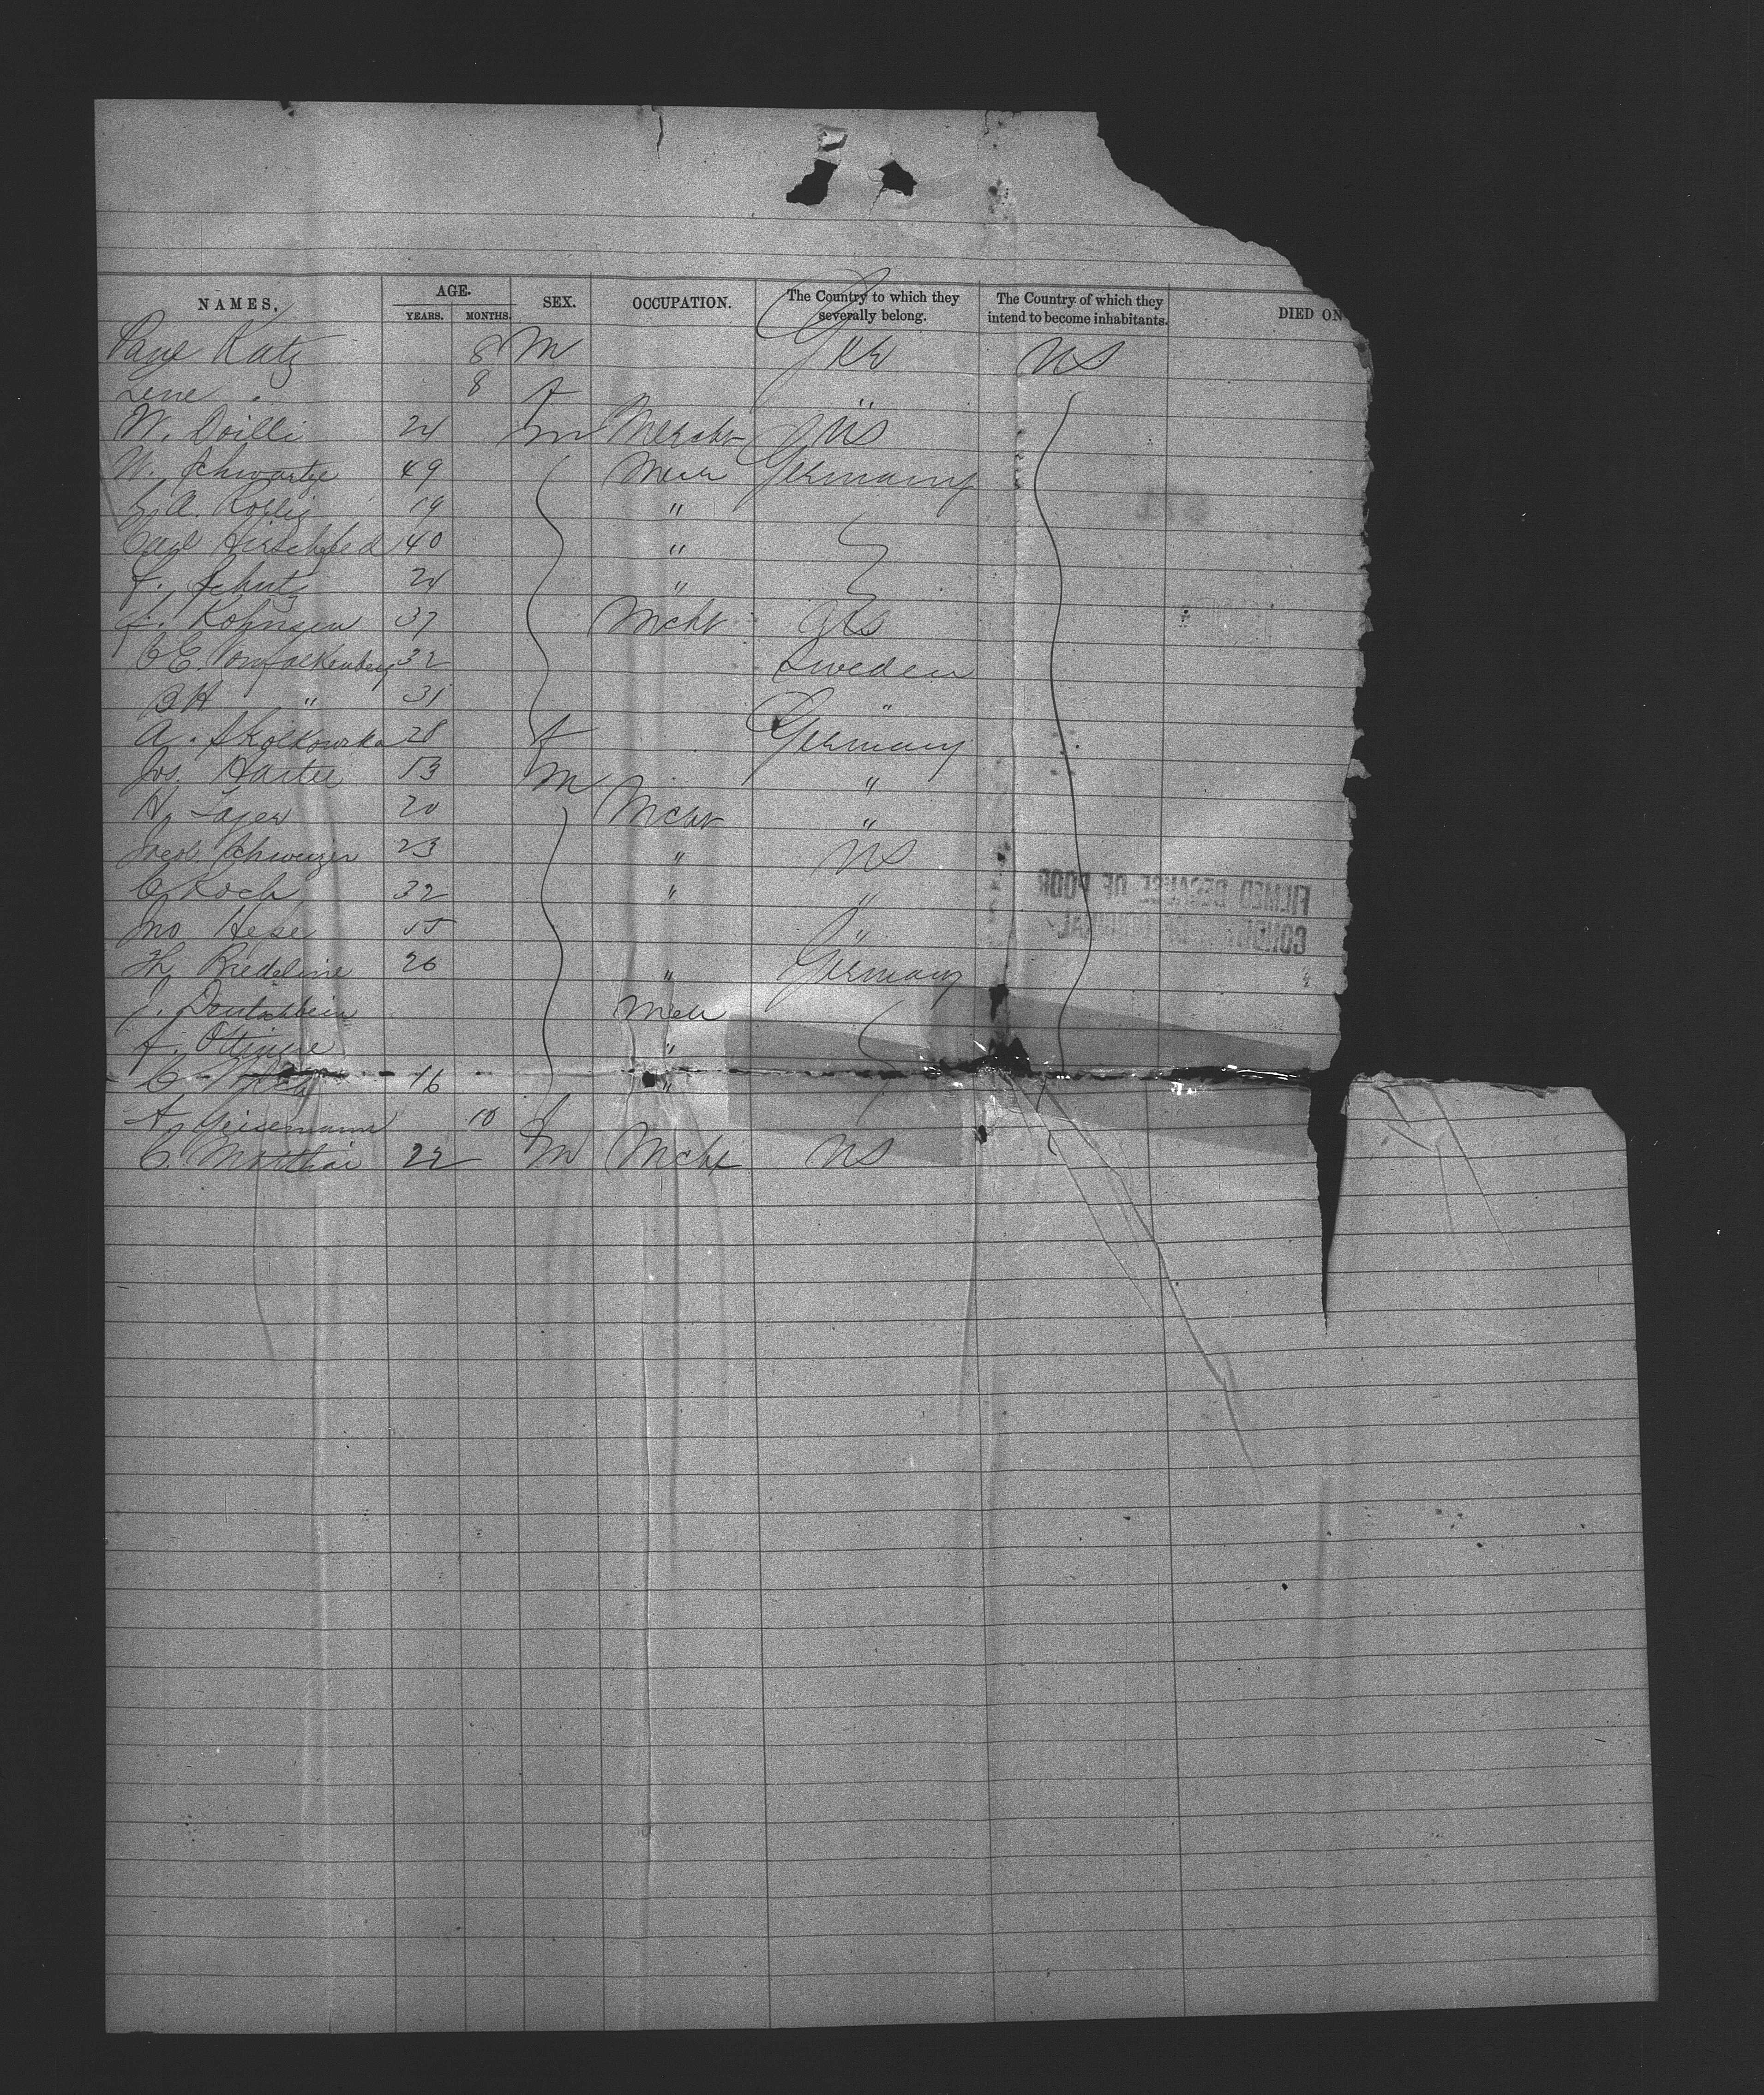 NAMES. AGE. YEARS. MONTHS. SEX. OCCUPATION. The Country to which they severally belong. The Country of which they intend to become inhabitants. DIED ON
Katz 8 M Ger US
Lene " 8 f "
W. Doilli 24 m Mercht US
W. Schwartze 49 Mer Germany
A. 19 "
Carl Hirschfeld 40 "
F. Schutz 24 "
Kohnsen 37 Mcht US
C E. Vonfalkenberg 32 Sweden
B H " 31 "
A. Skolkowska 28 f Germany
Jos. Hartee 53 M "
H. Lazer 20 Mcht "
Jacob Schweizer 23 " US
C Koch 32 " "
Jno Hesse 55 "
Th. Riedeline 26 " Germany
J. Deutschbein Mer
F. "
C 16 "
A. Geisemann 10 f
C. Matthai 22 m Mcht US
FILMED BECAUSE OF POOR
CONDITION OF ORIGINAL